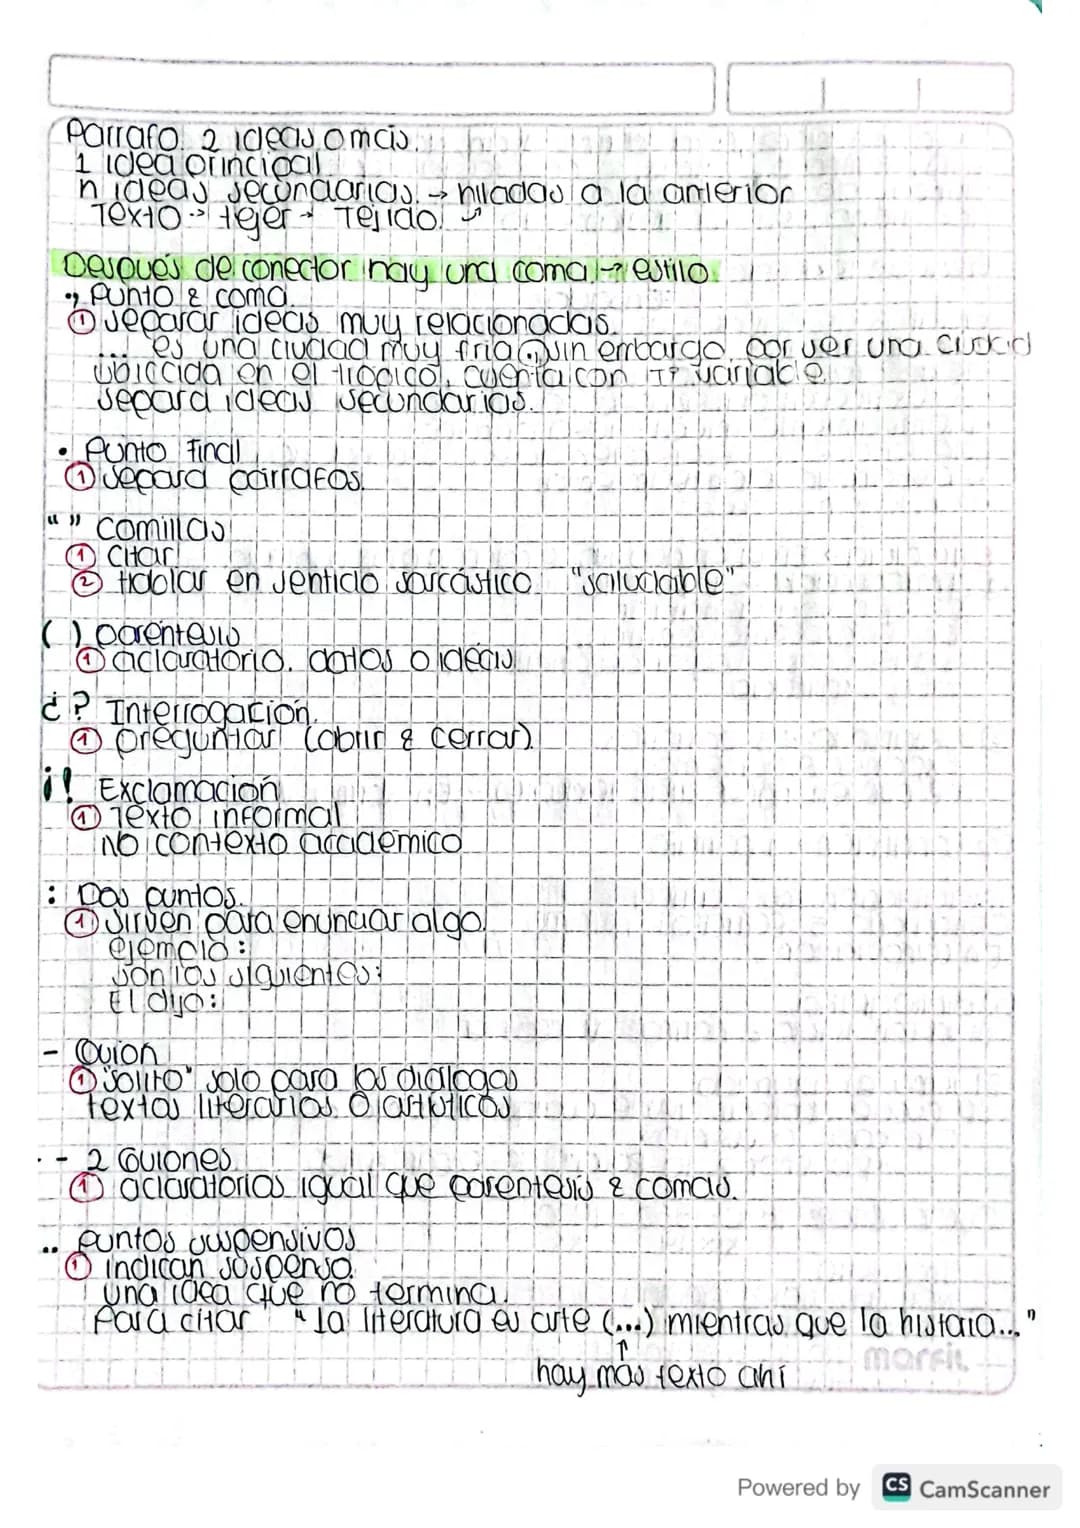 Párrafo: 2 ideas o más.
1 idea principal
n ideas secundarias. → hiladas a la anterior
Texto → tejer → Tejido.
Después de conector hay una coma. → estilo.
; Punto & coma.
① separar ideas muy relacionadas.
... es una ciudad muy fría ; sin embargo, por ser una ciudad
ubiccida en el trópico, cuenta con T° variable
separa ideas secundarias.
• Punto final
① separa párrafos.
“ ” Comillas
① Citar
② hablar en sentido sarcástico "saludable"
( ) parentesis
① aclaratorio. datos o ideas
¿? Interrogación.
① preguntar (abrir & cerrar).
¡! Exclamación
① Texto informal
NO contexto académico
: Dos puntos.
① sirven para enunciar algo.
ejemplo:
son los siguientes:
El dijo:
- Guion
① "solito" solo para los diálogos
textos literarios o artísticos
- - 2 Guiones
① aclaratorios igual que parentesis & comas.
.. Puntos suspensivos
① indican suspenso.
una idea que no termina.
Para citar “ la literatura es arte (...) mientras que la historia... ”
↑
hay más texto ahí
marfil
Powered by CS CamScanner